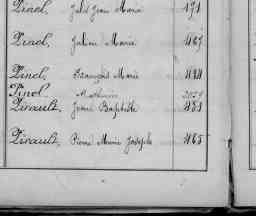 Pinel, Jules Jean Marie 171
Pinel, Julien Marie 467
Pinel, François Marie 424
Pinel Mathurin
Pirault, Jean Baptiste 483
Pirault, Pierre Marie Joseph 465